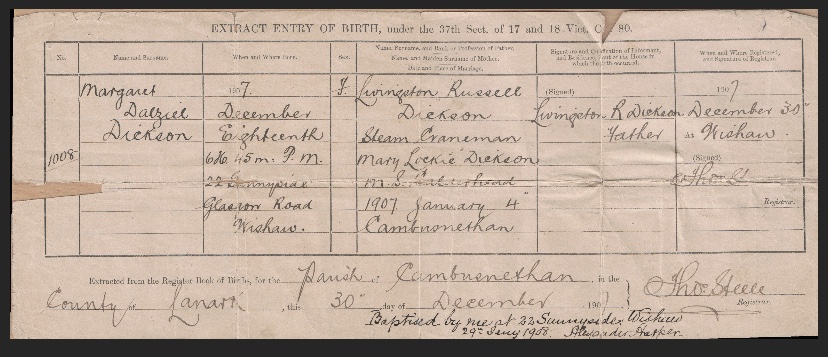 EXTRACT ENTRY OF BIRTH, under the 37th Sect. of 17 and 18 Vict. 80.
No.
Name and Surname.
When and Where Born.
Sex.
Name, Surname, and Rank or Profession of Father.
Name, and Maiden Surname of Mother.
Date and Place of Marriage.
Signature and Qualification of Informant,
and Residence, if out of the House in
which the Birth occurred.
When and Where Registered,
and Signature of Registrar.
1008
Margaret
Dalziel
Dickson
1907.
December
Eighteenth
6h. 45m. P.M.
22 Sunnyside
Glasgow Road
Wishaw.
F.
Livingston Russell
Dickson
Steam Craneman
Mary Lockie Dickson
m. S.
1907 January 4"
Cambusnethan
(Signed)
Livingston R Dickson
Father
1907
December 30"
At Wishaw.
(Signed)
Registrar.
Extracted from the Register Book of Births, for the Parish of Cambusnethan, in the
County of Lanark, this 30" day of December 1907
Thos Steele
Registrar.
Baptised by me at 22 Sunnyside, Wishaw
29th Jany 1908. Alexander